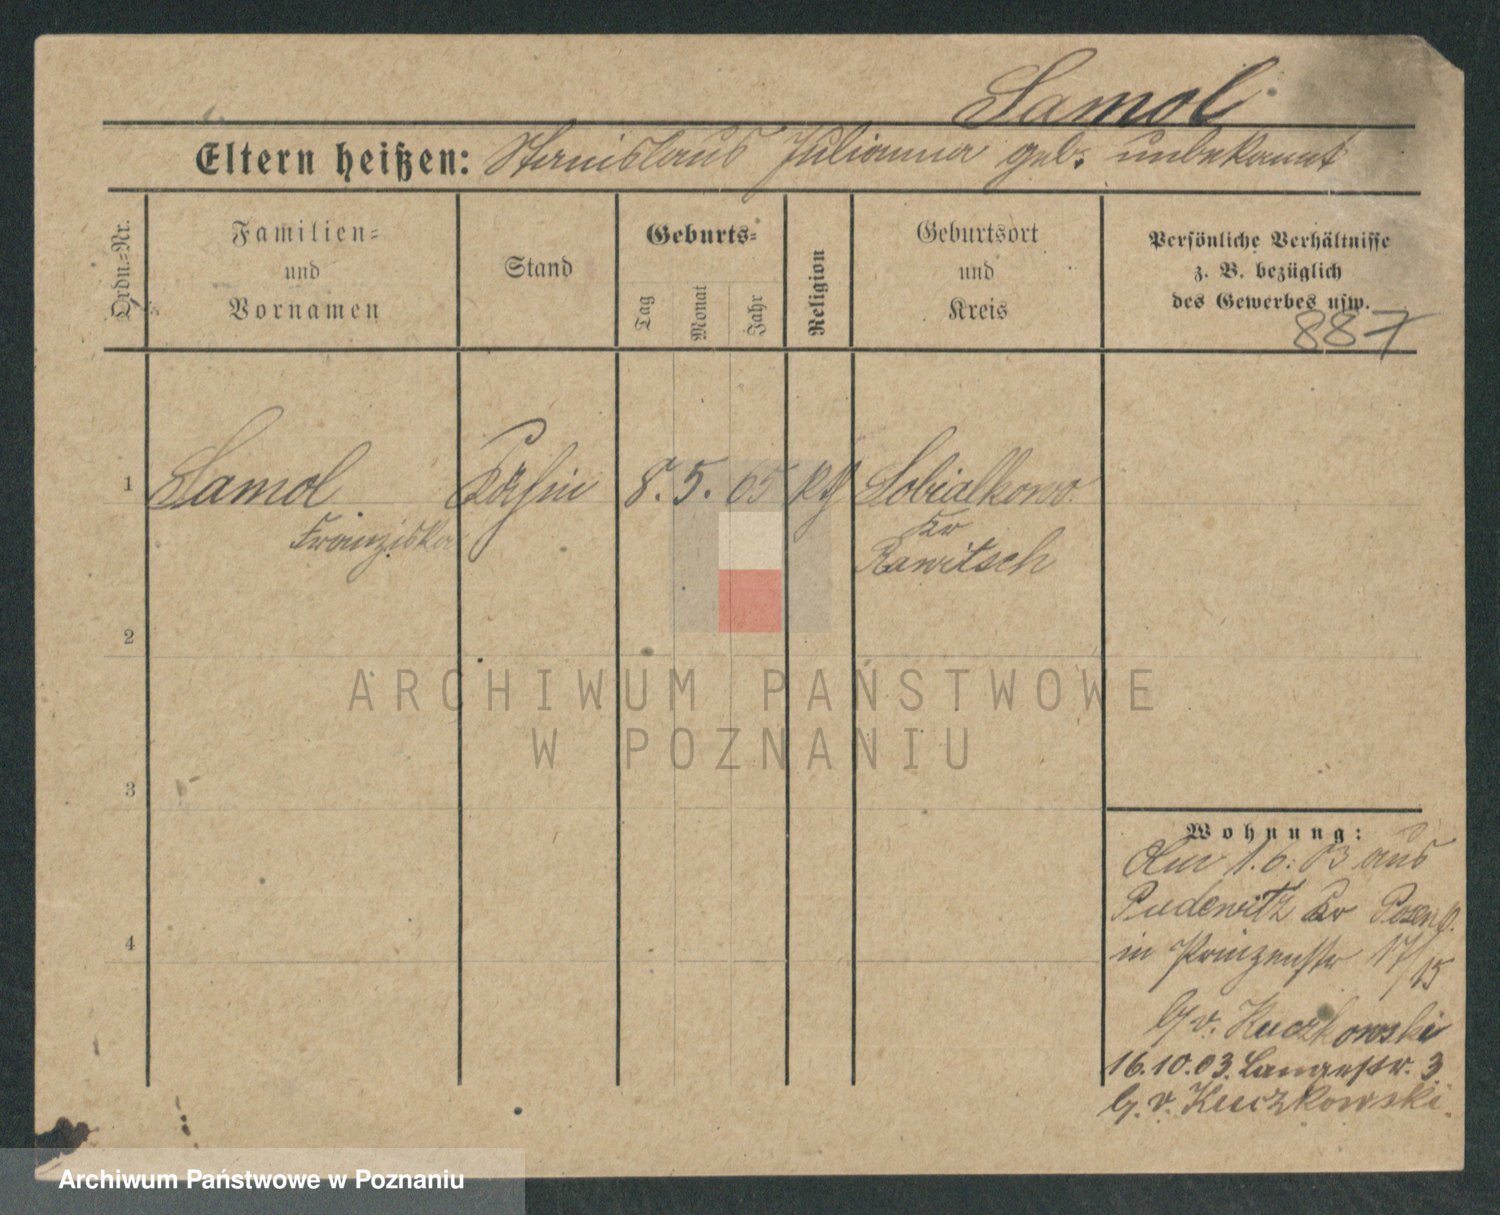 Samol
Eltern heißen: Stanislaus Julianna geb. unbekannt
Ordn.-Nr.
Familien-
und
Vornamen
Stand
Geburts-
Tag
Monat
Jahr
Religion
Geburtsort
und
Kreis
Persönliche Verhältnisse
z. B. bezüglich
des Gewerbes usw.
887
1 Samol Köchin 8. 5. 65 Sobialkowo
Franziska
Kr
Rawitsch
2
3
4
Wohnung:
Am 1.6.03 aus
Pudewitz Kr Posen O.
in Prinzenstr 17/15
b/ v. Kuczkowski
16.10.03. Langestr. 3
b. v. Kuczkowski.
ARCHIWUM PAŃSTWOWE
W POZNANIU
Archiwum Państwowe w Poznaniu